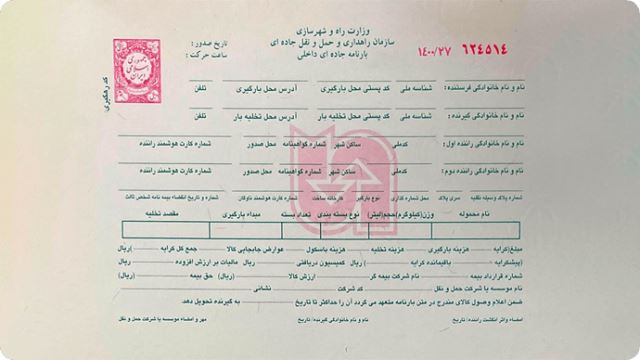 وزارت راه و شهرسازی
سازمان راهداری و حمل و نقل جاده ای
بارنامه جاده ای داخلی
۱۴۰۰/۲۷ ۶۲۴۵۱۴
تاریخ صدور :
ساعت حرکت :
جمهوری اسلامی ایران
کد رهگیری:
نام و نام خانوادگی فرستنده: شناسه ملی کد پستی محل بارگیری آدرس محل بارگیری تلفن
نام و نام خانوادگی گیرنده: شناسه ملی کد پستی محل تخلیه بار آدرس محل تخلیه بار تلفن
نام و نام خانوادگی راننده اول: کدملی ساکن شهر شماره گواهینامه محل صدور شماره کارت هوشمند راننده
نام و نام خانوادگی راننده دوم: کدملی ساکن شهر شماره گواهینامه محل صدور شماره کارت هوشمند راننده
شماره پلاک وسیله نقلیه سری پلاک محل شماره گذاری نوع بارگیر کارخانه ساخت شماره کارت هوشمند ناوگان شماره و تاریخ انقضاء بیمه نامه شخص ثالث
نام محموله وزن(کیلوگرم)حجم(لیتر) نوع بسته بندی تعداد بسته مبداء بارگیری مقصد تخلیه
مبلغ(کرایه هزینه بارگیری هزینه تخلیه هزینه باسکول عوارض جابجایی کالا جمع کل کرایه )ریال
(پیشکرایه باقیمانده کرایه )ریال کمیسیون دریافتی )ریال مالیات بر ارزش افزوده )ریال
شماره قرارداد بیمه نام شرکت بیمه گر ارزش کالا (ریال) حق بیمه (ریال)
نام موسسه یا شرکت حمل و نقل کد شرکت نشانی
ضمن اعلام وصول کالای مندرج در متن بارنامه متعهد می گردد آن را حداکثر تا تاریخ به گیرنده تحویل دهد.
امضاء واثر انگشت راننده: تاریخ نام و نام خانوادگی گیرنده: تاریخ مهر و امضاء موسسه یا شرکت حمل و نقل